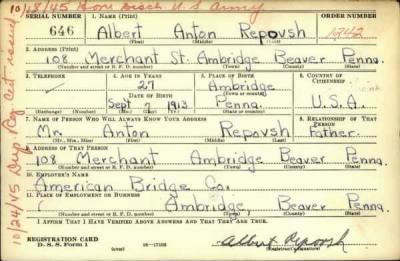 10/18/45 Hon Disch. U S Army
SERIAL NUMBER 1. NAME (Print) ORDER NUMBER
646 Albert Anton Repovsh 1242
(First) (Middle) (Last)
2. ADDRESS (Print)
108 Merchant St. Ambridge Beaver Penna.
(Number and street or R. F. D. number) (Town) (County) (State)
3. TELEPHONE 4. AGE IN YEARS 5. PLACE OF BIRTH 6. COUNTRY OF CITIZENSHIP
27 Ambridge
DATE OF BIRTH
Sept 2 1913 Penna. U.S.A.
(Exchange) (Number) (Mo.) (Day) (Yr.) (State or country)
7. NAME OF PERSON WHO WILL ALWAYS KNOW YOUR ADDRESS 8. RELATIONSHIP OF THAT PERSON
Mr. Anton Repovsh Father.
(Mr., Mrs., Miss) (First) (Middle) (Last)
9. ADDRESS OF THAT PERSON
108 Merchant Ambridge Beaver Penna.
(Number and street or R. F. D. number) (Town) (County) (State)
10. EMPLOYER'S NAME
American Bridge Co.
11. PLACE OF EMPLOYMENT OR BUSINESS
Ambridge, Beaver Penna.
(Number and street or R. F. D. number) (Town) (County) (State)
I AFFIRM THAT I HAVE VERIFIED ABOVE ANSWERS AND THAT THEY ARE TRUE.
REGISTRATION CARD
D. S. S. Form 1 (over) 16—17105 Albert Repovsh
(Registrant's signature)
10/24/45 Dup Reg Cert issued